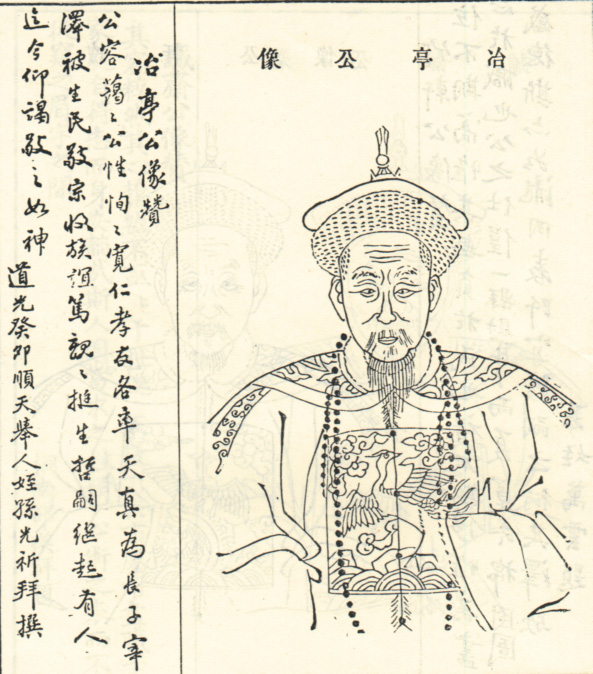 冶亭公像
冶亭公像贊
公容藹〻公性恂〻寬仁孝友各率天真為長子宰
澤被生民敬宗收族誼篤親〻挺生哲嗣繼起有人
迄今仰謁敬之如神
道光癸卯順天舉人姪孫光祈拜撰